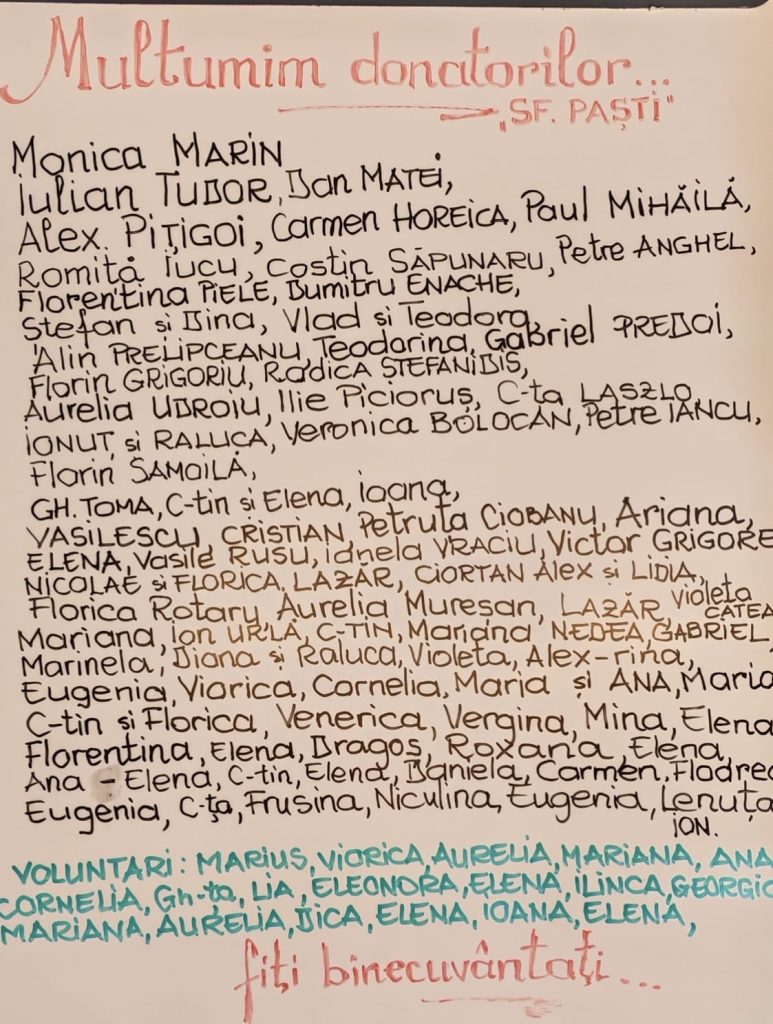 Multumim donatorilor...
"SF. PAȘTI"
Monica MARIN
Iulian TUDOR, Dan MATEI,
Alex. PIȚIGOI, Carmen HOREICA, Paul MIHĂILĂ,
Romită IUCU, Costin SĂPUNARU, Petre ANGHEL,
Florentina PIELE, Dumitru ENACHE,
Stefan și Dina, Vlad și Teodora,
Alin PRELIPCEANU, Teodorina, Gabriel PREDOI,
Florin GRIGORIU, Rodica STEFANIDIS,
Aurelia UDROIU, Ilie Piciorus, C-ta LASZLO,
IONUT, si RALUCA, Veronica BOLOCAN, Petre IANCU,
Florin SAMOILĂ,
GH. TOMA, C-tin si Elena, Ioana,
VASILESCU CRISTIAN, Petruta CIOBANU, Ariana,
ELENA, Vasile RUSU, Ionela VRACIU, Victor GRIGORE
NICOLAE si FLORICA, LAZĂR, CIORTAN Alex și LIDIA,
Florica Rotaru, Aurelia Mureșan, LAZĂR, Violeta CATEA
Mariana, Ion URLĂ, C-TIN, Mariana NEDEA, GABRIEL
Marinela, Diana și Raluca, Violeta, Alex-rina,
Eugenia, Viorica, Cornelia, Maria și ANA, Maria
C-tin și Florica, Venerica, Vergina, Mina, Elena
Florentina, Elena, Dragoș, Roxana, Elena,
Ana - Elena, C-tin, Elena, Daniela, Carmen, Flodrea
Eugenia, C-ța, Frusina, Niculina, Eugenia, Lenuța
ION.
VOLUNTARI: MARIUS, VIORICA, AURELIA, MARIANA, ANA
CORNELIA, Gh-ța, LIA, ELEONORA, ELENA, ILINCA, GEORGIC
MARIANA, AURELIA, DICA, ELENA, IOANA, ELENA,
fiți binecuvântați...